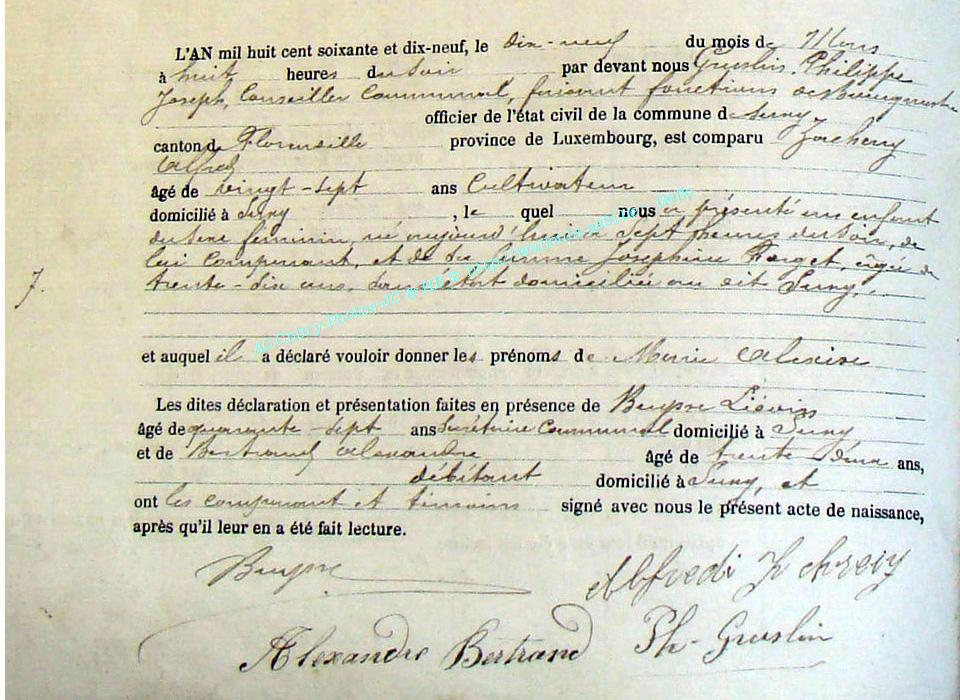 L'AN mil huit cent soixante et dix-neuf, le dix-neuf du mois de Mars
à huit heures du soir par devant nous Gruslin, Philippe
Joseph, Conseiller Communal, faisant fonctions de Bourgmestre
officier de l'état civil de la commune de Suny
canton de Florenville province de Luxembourg, est comparu
Alfred
âgé de vingt-sept ans Cultivateur
domicilié à Suny, lequel nous a présenté un enfant
du sexe féminin, né aujourd'hui à sept heures du soir, de
lui comparant, et de sa femme Joséphine Forget, âgée de
7. trente-six ans, domiciliée au dit Suny.
et auquel il a déclaré vouloir donner les prénoms de Marie
Les dites déclaration et présentation faites en présence de Buysse Liévin
âgé de quarante-sept ans Secrétaire Communal domicilié à Suny
et de Bertrand Alexandre âgé de trente-deux ans,
débitant domicilié à Suny, et
ont les comparant et témoins signé avec nous le présent acte de naissance,
après qu'il leur en a été fait lecture.
Buysse
Alfred
Alexandre Bertrand Ph-Gruslin